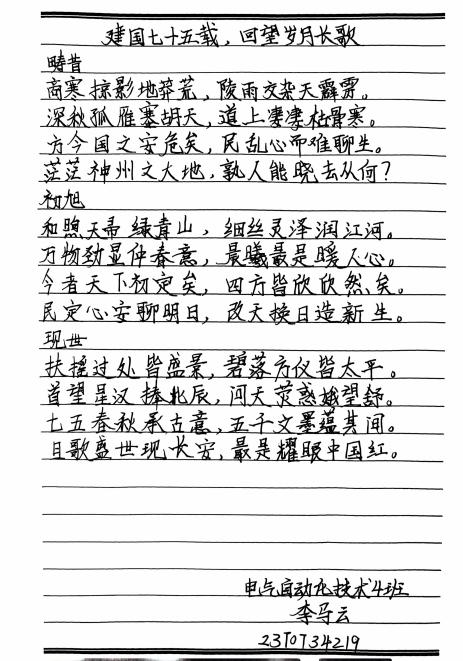 建国七十五载，回望岁月长歌
畴昔
商寒掠影地莽荒，陵雨交杂天霹雳。
深秋孤雁塞胡天，道上凄凄枯骨寒。
方今国之安危矣，民乱心而难聊生。
茫茫神州文大地，孰人能晓去从何？
初旭
和煦天帚绿青山，细丝灵泽润江河。
万物劲显伴春意，晨曦最是暖人心。
今者天下初定矣，四方皆欣欣然矣。
民定心安聊明日，改天换日造新生。
现世
扶摇过处皆盛景，碧落方仪皆太平。
首望星汉捧北辰，问天荧惑娥望舒。
七五春秋承古意，五千文墨蕴其间。
目歌盛世现长安，最是耀眼中国红。
电气自动化技术4班
李马云
2370734219